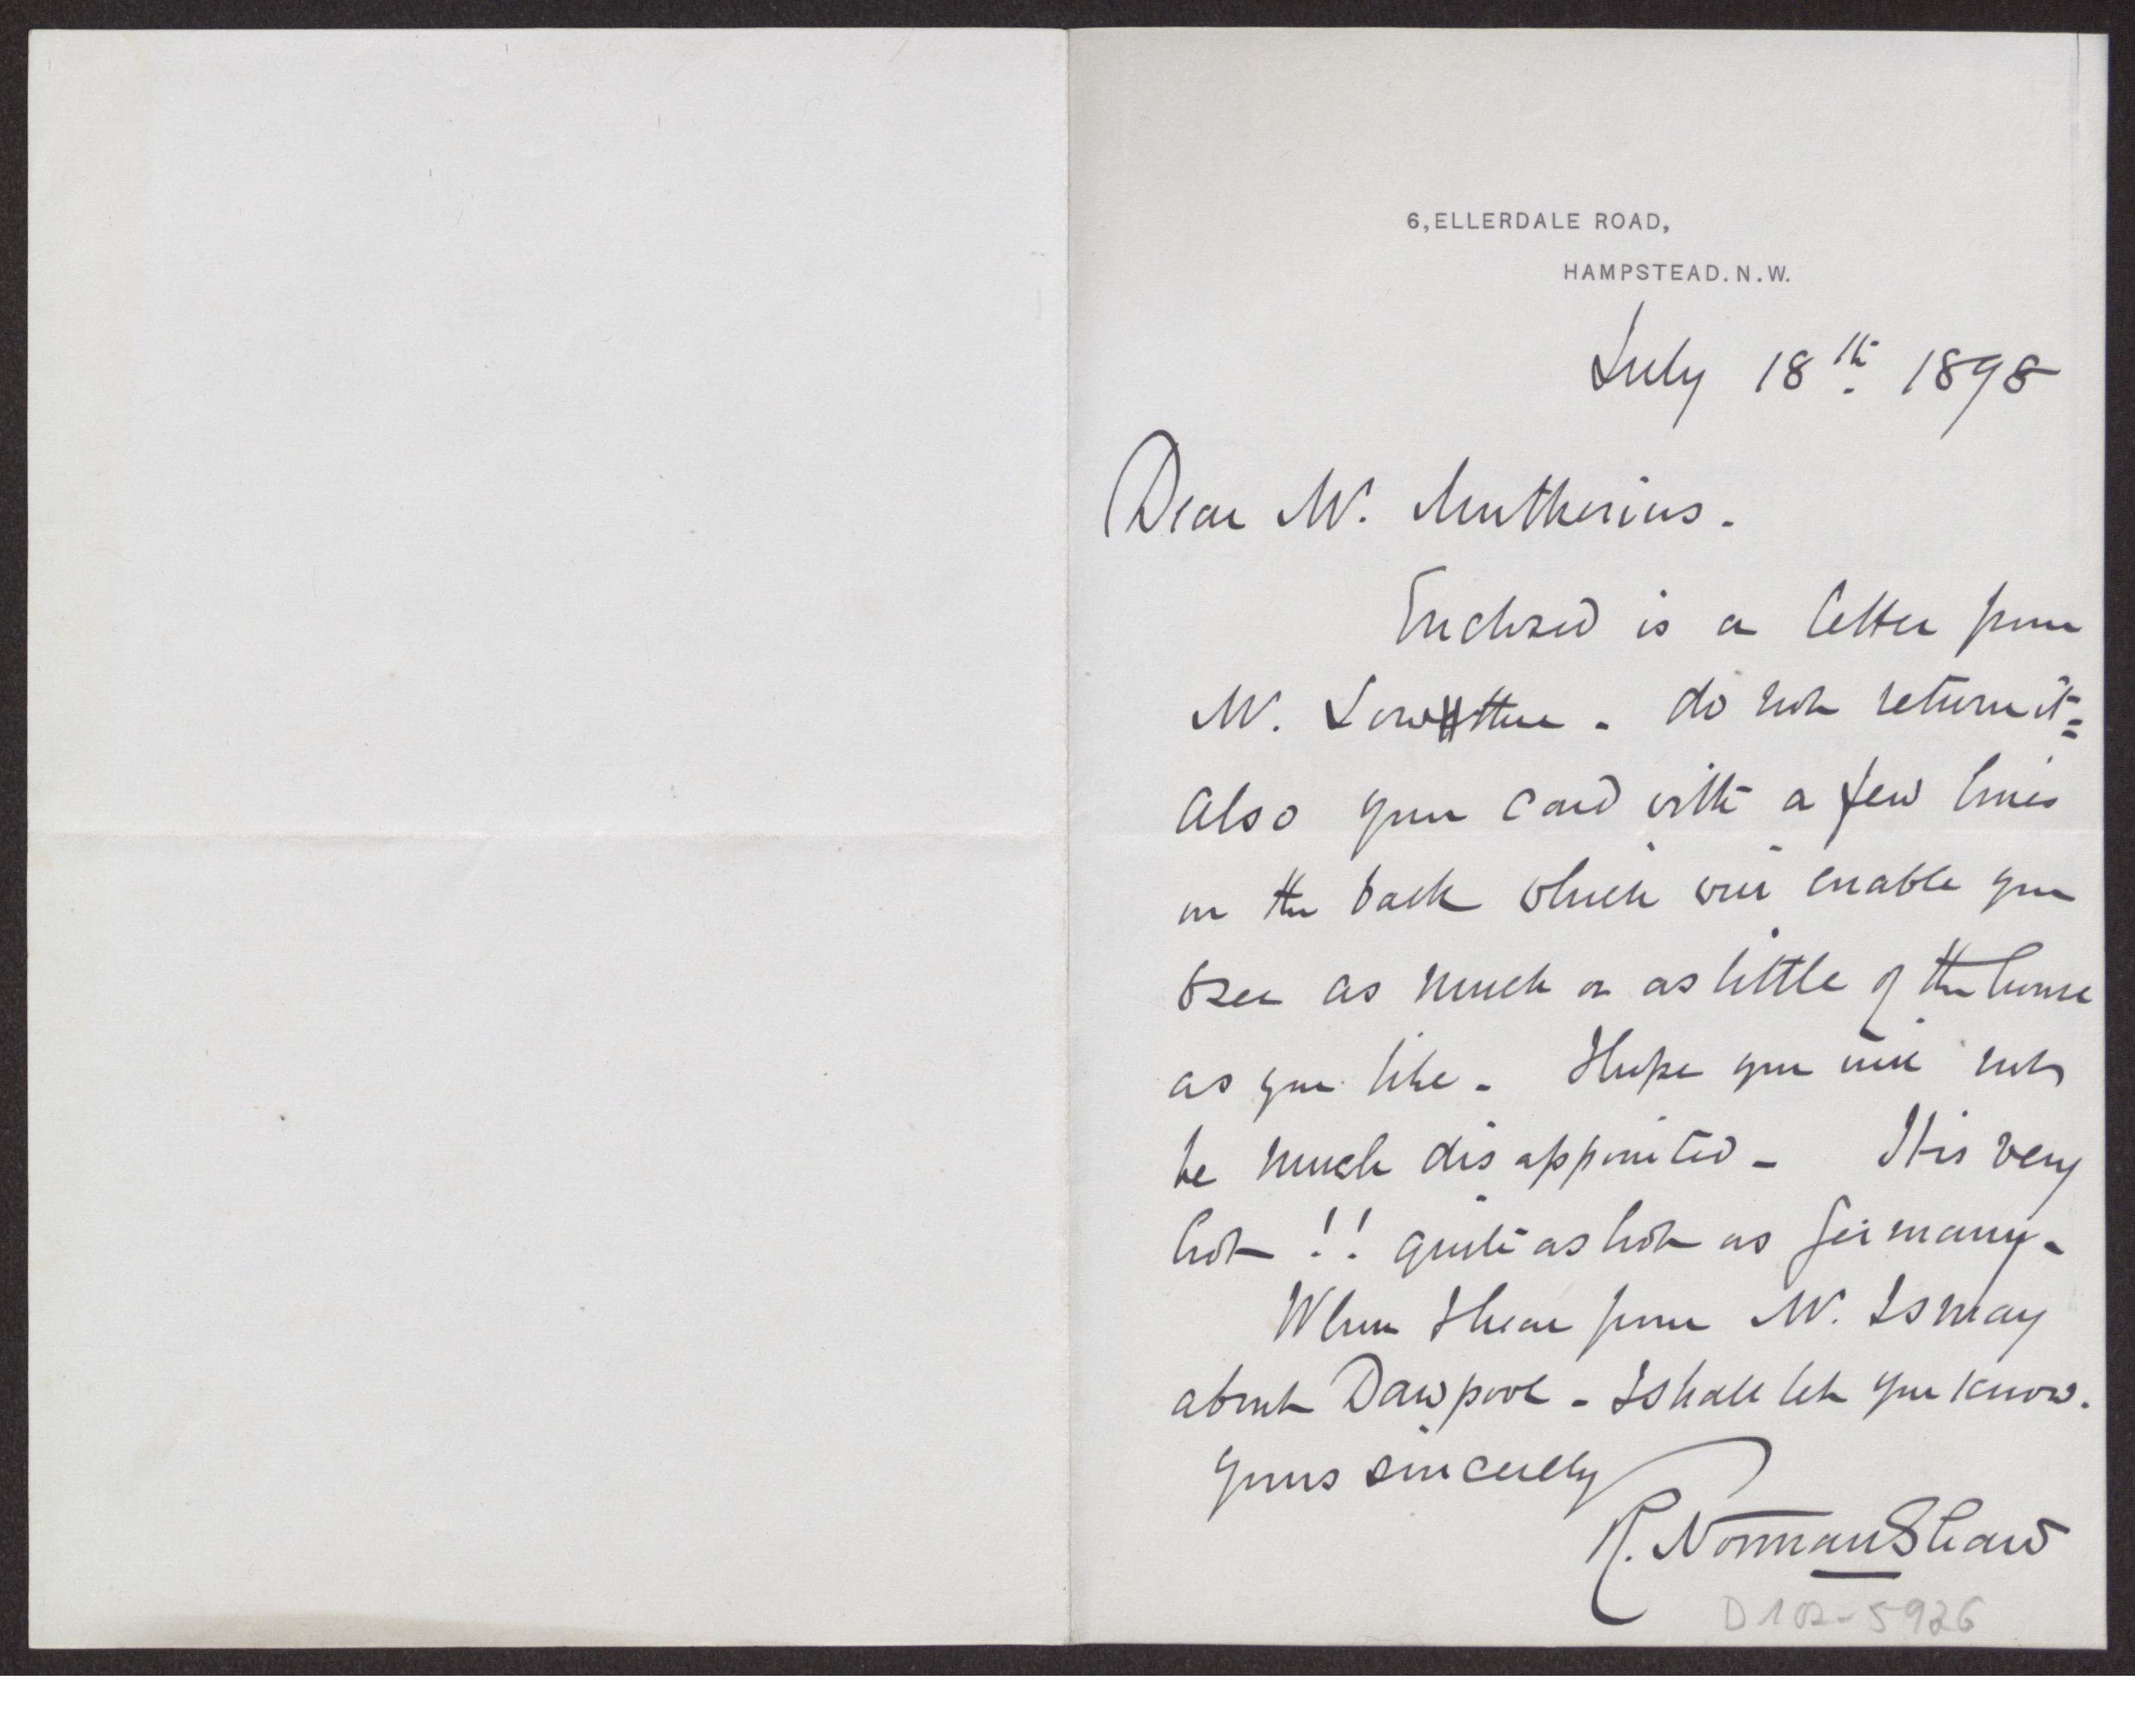 6, ELLERDALE ROAD,
HAMPSTEAD. N. W.
July 18th. 1898
Dear Mr. Muthesius.
Enclosed is a letter from
Mr. Lowther - do not return it =
Also your card with a few lines
on the back which will enable you
to see as much or as little of the house
as you like - I hope you will not
be much disappointed - It is very
hot !! quite as hot as Germany -
When I hear from Mr. Ismay
about Dawpool - I shall let you know.
Yours sincerely
R. Norman Shaw
D102-5926